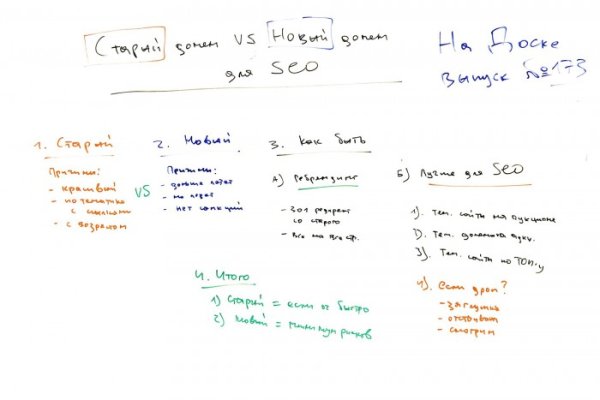 Старый домен VS Новый домен
для SEO
На Доске
выпуск №173
1. Старый
Причины:
- красивый
- по тематике
с ссылками
- с возрастом
VS
2. Новый
Причины:
- дольше
- нет санкций
3. Как быть
А) Ребрендинг
- 301 редирект
со старого
- Все на все стр.
Б) Лучше для SEO
1). Тем. сайты на аукционе
2). Тем. домены аукц.
3). Тем. сайты по ТОПу
4). если дроп?
- загнулся
- отстаивать
- смотрим
4. Итого
1) Старый = если оч быстро
2) Новый = минимум рисков